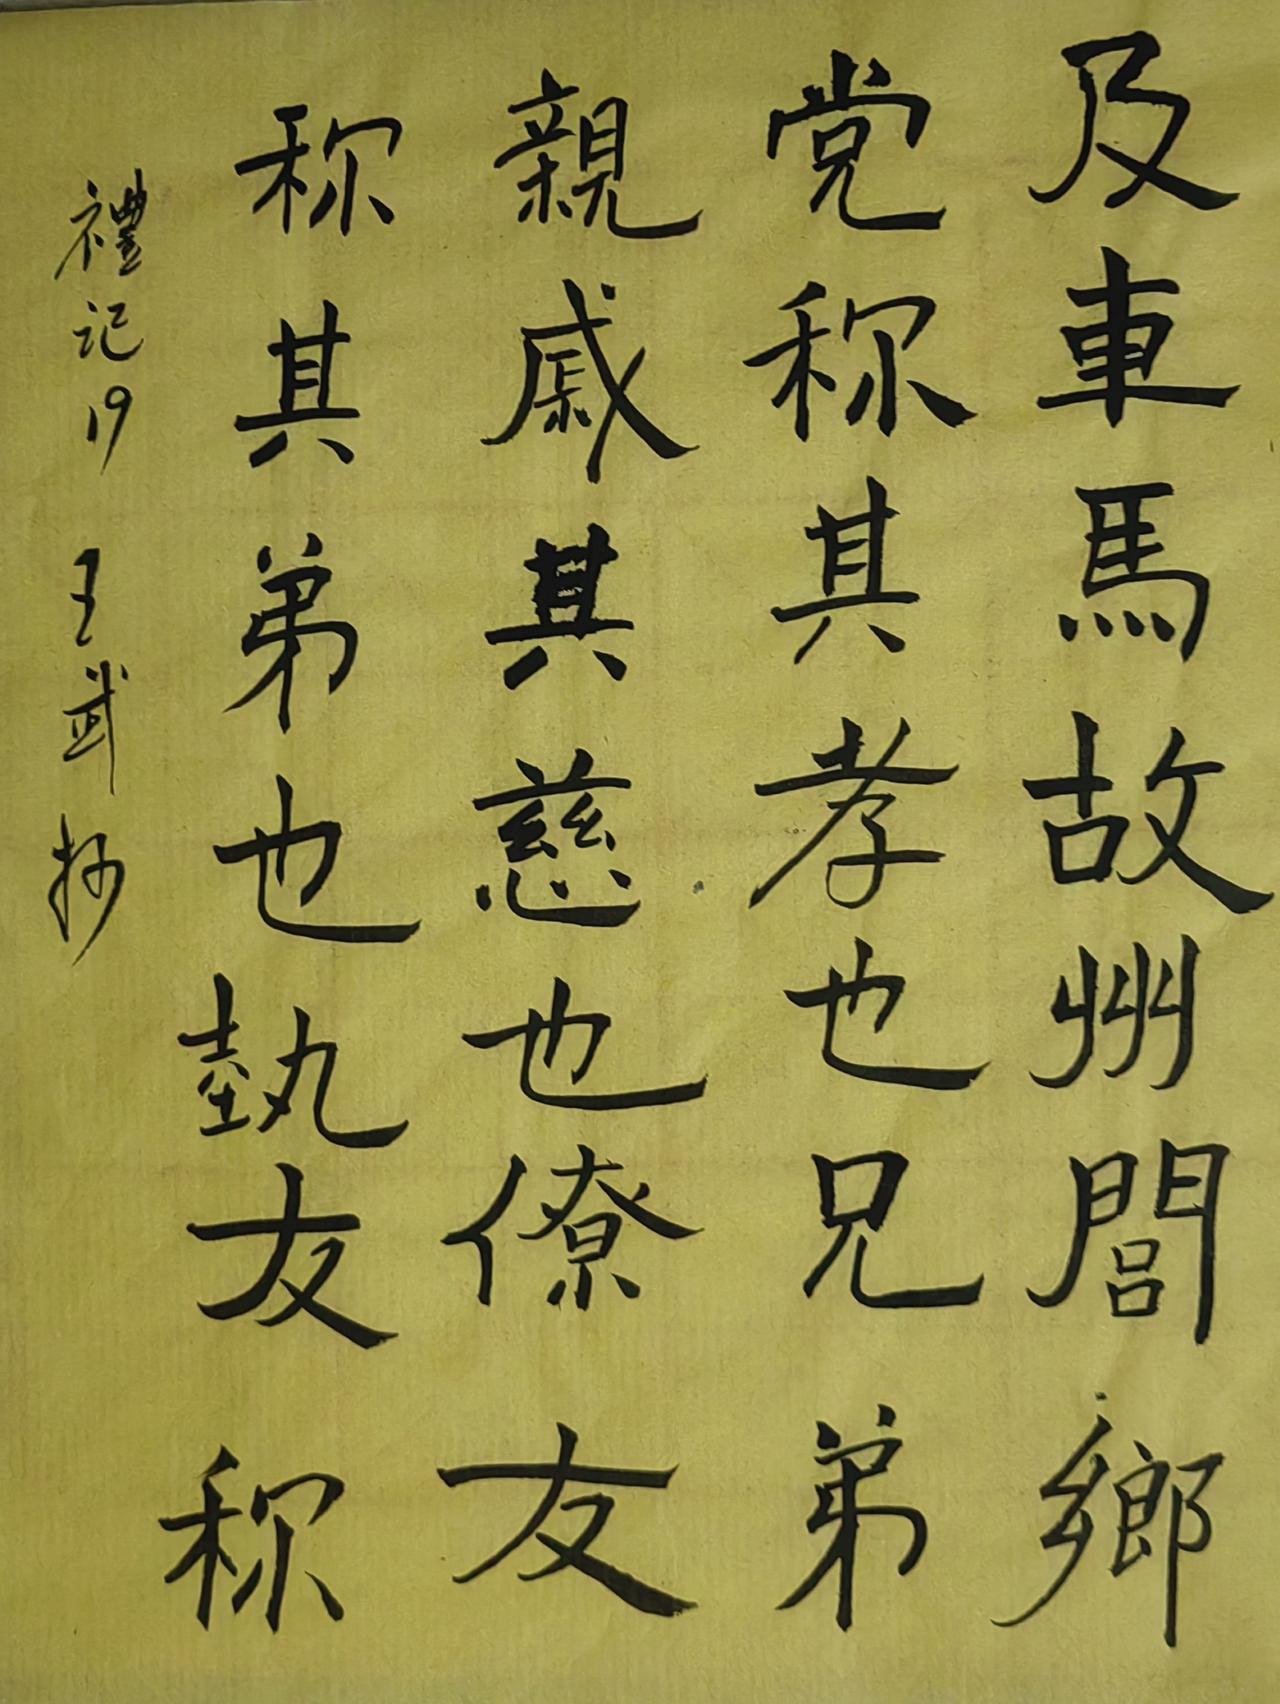 及車馬故州閭鄉
党称其孝也兄弟
親戚其慈也僚友
称其弟也執友称
禮记19 王武抄